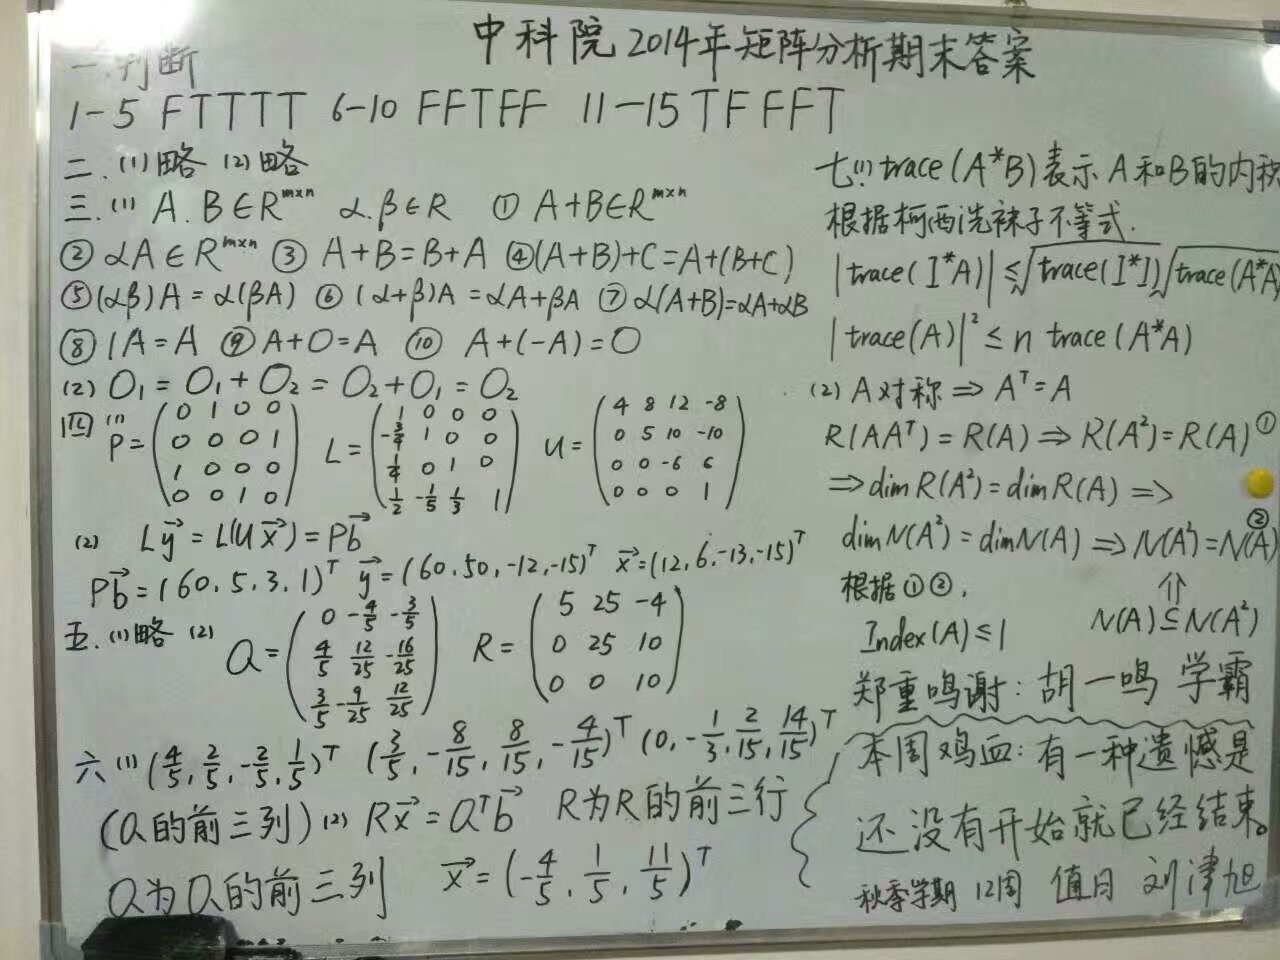 中科院2014年矩阵分析期末答案
一.判断
1-5 FTTTT 6-10 FFTFF 11-15 TFFFT
二.(1)略 (2)略
三.(1) A.B∈R^{m×n} α.β∈R ① A+B∈R^{m×n}
② αA∈R^{m×n} ③ A+B=B+A ④(A+B)+C=A+(B+C)
⑤(αβ)A=α(βA) ⑥ (α+β)A=αA+βA ⑦ α(A+B)=αA+αB
⑧ 1A=A ⑨ A+O=A ⑩ A+(-A)=O
(2) O₁=O₁+O₂=O₂+O₁=O₂
四(1) P=(0 1 0 0; 0 0 0 1; 1 0 0 0; 0 0 1 0) L=(1 0 0 0; -3/4 1 0 0; 1/4 0 1 0; 1/2 -1/5 1/3 1) U=(4 8 12 -8; 0 5 10 -10; 0 0 -6 6; 0 0 0 1)
(2) Ly⃗=L(Ux⃗)=Pb⃗
Pb⃗=(60.5.3.1)^T y⃗=(60.50.-12.-15)^T x⃗=(12,6.-13,-15)^T
五.(1)略 (2) Q=(0 -4/5 -3/5; 4/5 12/25 -16/25; 3/5 -9/25 12/25) R=(5 25 -4; 0 25 10; 0 0 10)
六(1) (4/5,2/5,-2/5,1/5)^T (3/5,-8/15,8/15,-4/15)^T (0,-1/3,2/15,14/15)^T
(Q的前三列)(2) Rx⃗=Q^Tb⃗ R为R的前三行
Q为Q的前三列 x⃗=(-4/5,1/5,11/5)^T
七(1) trace(A*B)表示A和B的内积
根据柯西洗袜子不等式.
|trace(I*A)|≤√trace(I*I)√trace(A*A)
|trace(A)|²≤n trace(A*A)
(2) A对称⇒A^T=A
R(AA^T)=R(A)⇒R(A²)=R(A)①
⇒dimR(A²)=dimR(A)⇒
dimN(A²)=dimN(A)⇒N(A²)=N(A)②
根据①②,
⇑
Index(A)≤1 N(A)⊆N(A²)
郑重鸣谢:胡一鸣 学霸
本周鸡血:有一种遗憾是
还没有开始就已经结束。
秋季学期 12周 值日 刘津旭